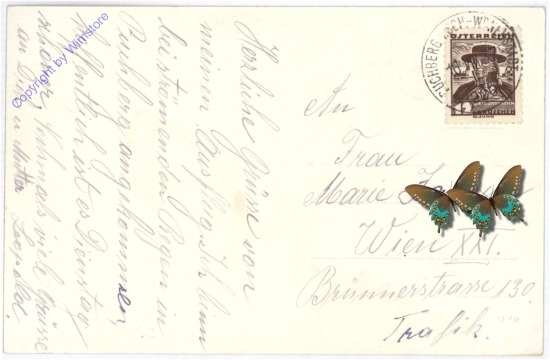 Herzliche Grüsse von
meinem Ausflug. Ich bin
bei strömenden Regen in
Puchberg angekommen
Hoffentlich ist es Dienstag
schöner. Nochmals viele Grüsse
an D. u Mutter Leopold.
Copyright by Wimstore
PUCHBERG
ÖSTERREICH
12
An
Frau
Marie
Wien XXI.
Brünnerstrasse 130.
Trafik.